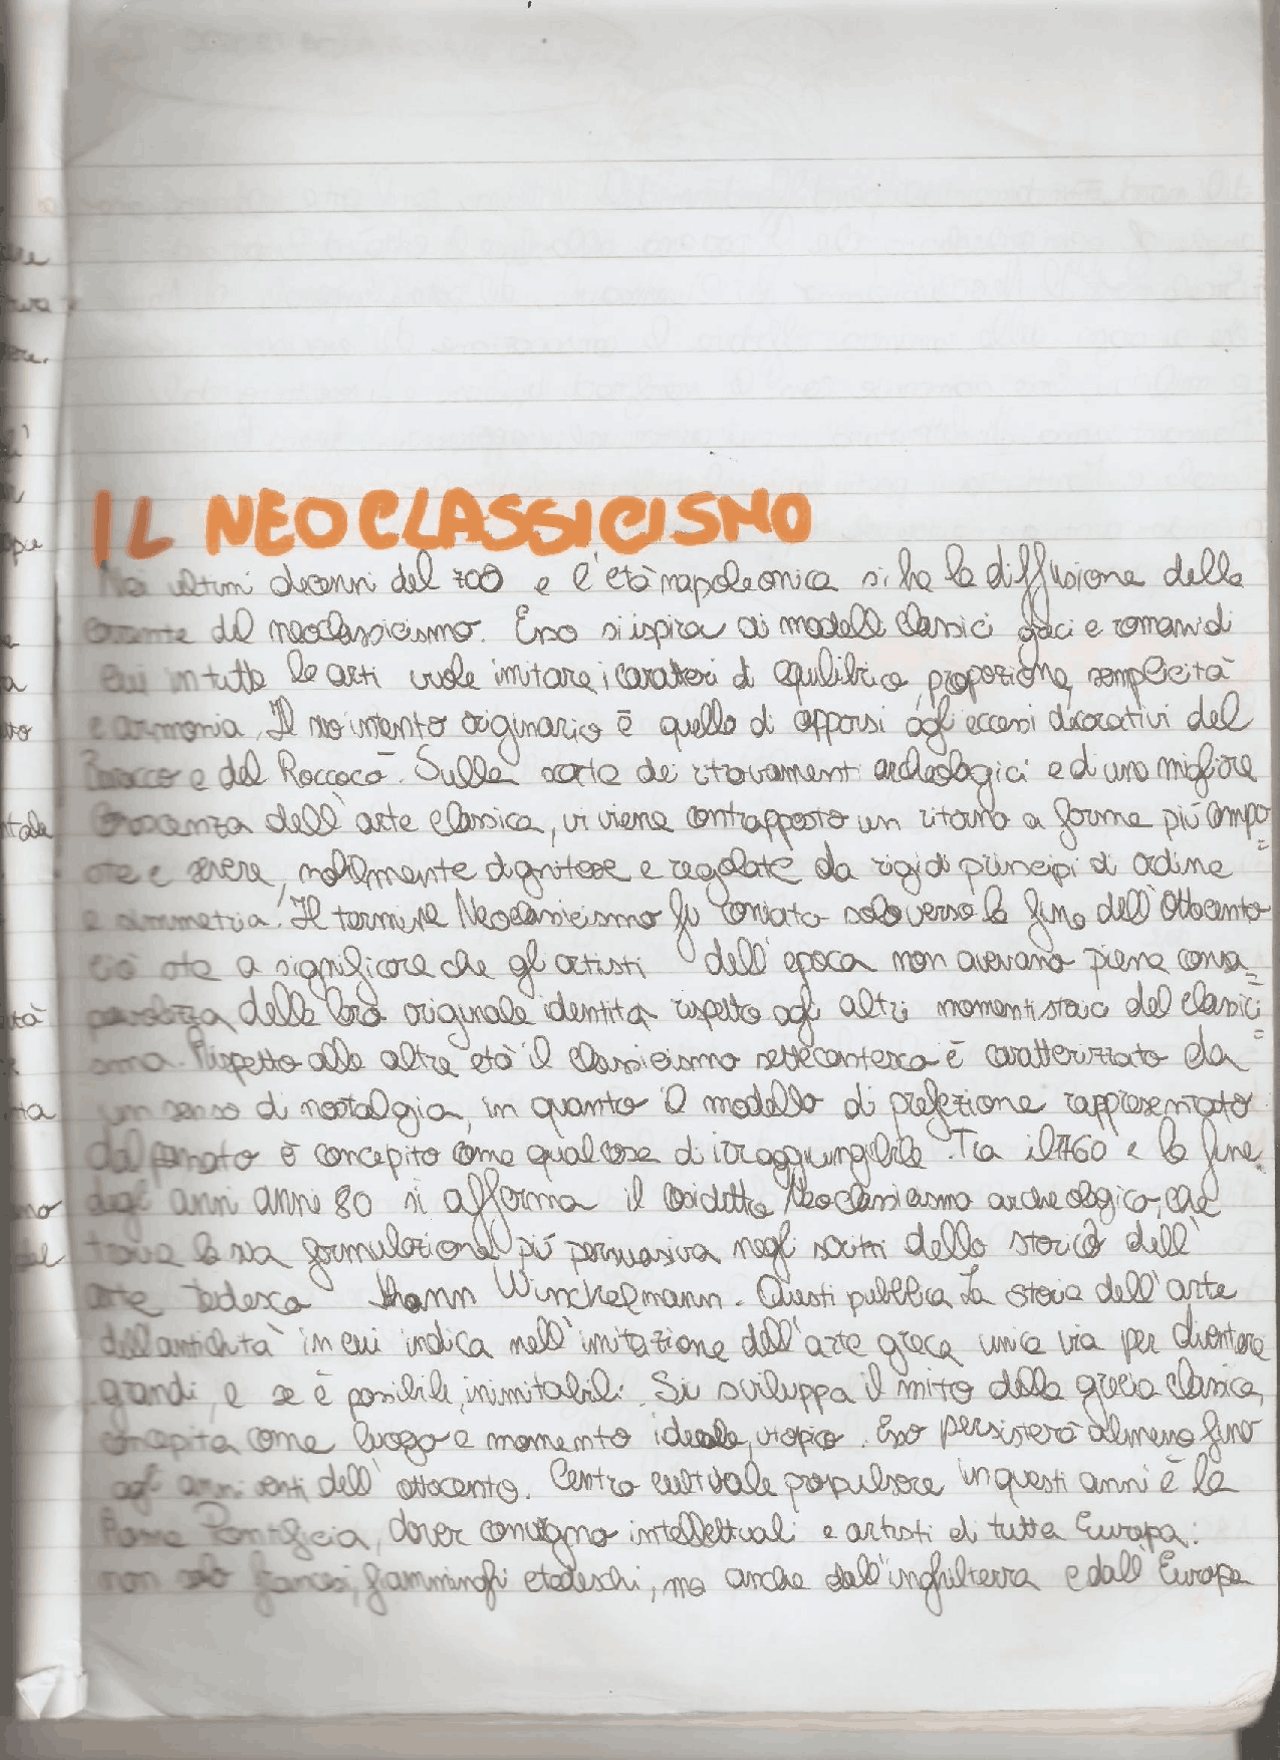 IL NEOCLASSICISMO
Nei ultimi decenni del 700 e l'età napoleonica si ha la diffusione della
corrente del neoclassicismo. Esso si ispira ai modelli classici greci e romani di
cui in tutte le arti vuole imitare i caratteri di equilibrio, proporzione, semplicità
e armonia. Il suo intento originario è quello di opporsi agli eccessi decorativi del
Barocco e del Roccocò. Sulla scorta dei ritrovamenti archeologici e di una migliore
conoscenza dell'arte classica, vi viene contrapposto un ritorno a forme più compo
ste e severe, nobilmente dignitose e regolate da rigidi principi di ordine
e simmetria. Il termine Neoclassicismo fu coniato solo verso la fine dell'Ottocento
ciò sta a significare che gli artisti dell'epoca non avevano piena consa=
pevolezza della loro originale identità rispetto agli altri momenti storici del classici=
smo. Rispetto alle altre età il classicismo settecentesco è caratterizzato da
un senso di nostalgia, in quanto il modello di prefezione rappresentato
dal passato è concepito come qualcosa di irraggiungibile. Tra il 1760 e la fine
degli anni anni 80 si afferma il cosidetto Neoclassicismo archeologico, che
trova la sua formulazione più persuasiva negli scritti dello storico dell'
arte tedesco Winckelmann. Questi pubblica La storia dell'arte
dell'antichità in cui indica nell'imitazione dell'arte greca unica via per diventare
grandi, e se è possibile, inimitabili. Si sviluppa il mito della grecia classica,
concepita come luogo e momento ideale, utopico. Esso persisterà almeno fino
agli anni venti dell'ottocento. Centro culturale propulsore in questi anni è la
Roma Pontificia, dover convengono intellettuali e artisti di tutta Europa:
non solo francesi, fiamminghi e tedeschi, ma anche dall'inghilterra e dall'Europa